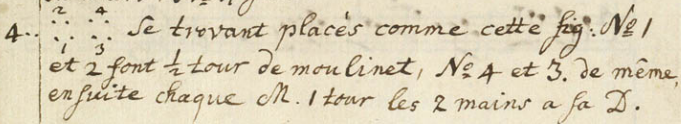 2 4
4.. Se trovant placés comme cette fig: No 1
1 3
et 2 font ½ tour de moulinet, No 4 et 3. de même,
ensuite chaque M. 1 tour les 2 mains a sa D.